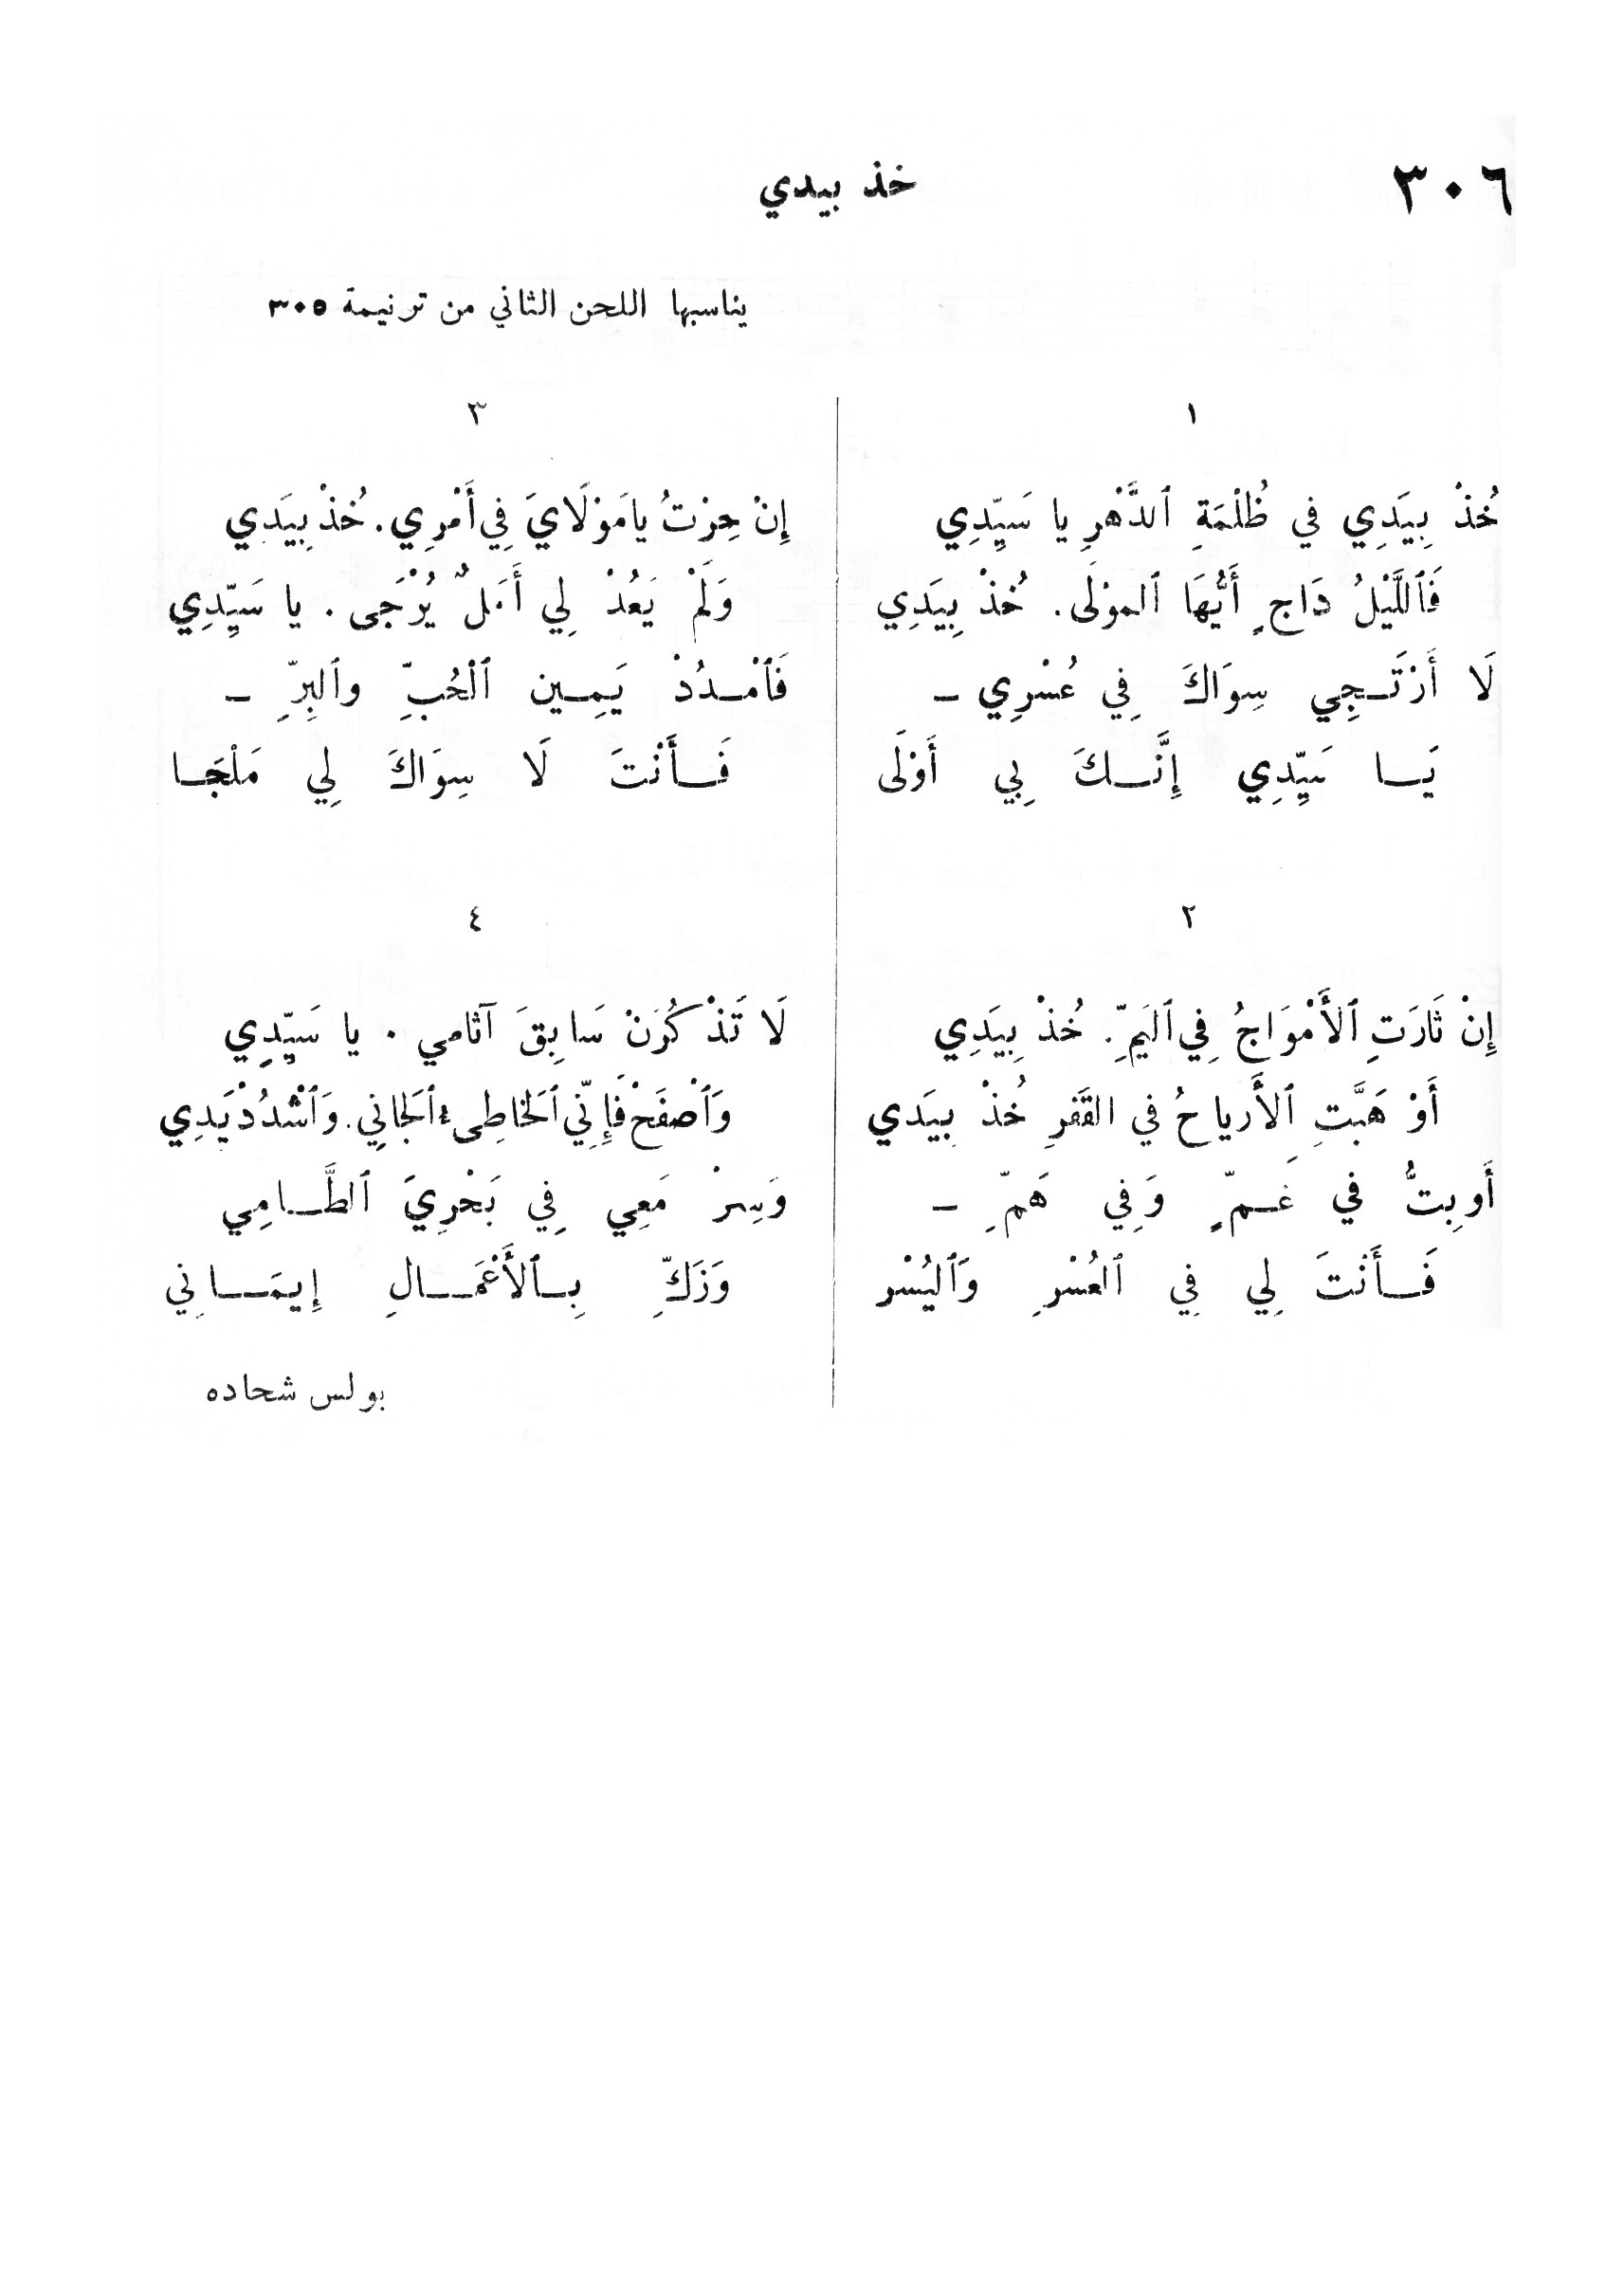 ٣٠٦
خذ بيدي
يناسبها اللحن الثاني من ترنيمة ٣٠٥
١
خُذْ بِيَدِي في ظُلْمَةِ ٱلدَّهْرِ يا سَيِّدِي
فَٱللَّيْلُ دَاجٍ أَيُّهَا ٱلموْلَى. خُذْ بِيَدِي
لَا أَرْتَـجِي سِوَاكَ فِي عُسْرِي –
يَـا سَيِّدِي إِنَّـكَ بِي أَوْلَى
٢
إِنْ ثَارَتِ ٱلأَمْوَاجُ فِي ٱليَمِّ. خُذْ بِيَدِي
أَوْ هَبَّتِ ٱلأَرياحُ في القَفرِ خُذْ بِيَدي
أَو بِتُّ في غَـمٍّ وَفِي هَمِّ –
فَـأَنْتَ لِي فِي ٱلعُسْرِ وَٱليُسْر
٣
إِنْ حِرْتُ يا مَوْلَايَ فِي أَمْرِي. خُذْ بِيَدِي
وَلَمْ يَعُدْ لِي أَمَلٌ يُرْجَى. يا سَيِّدِي
فَٱمْـدُدْ يَمِـين ٱلْحُبِّ وٱلبِرِّ –
فَـأَنْتَ لَا سِوَاكَ لِي مَلْجَـا
٤
لَا تَذْكُرَنْ سَابِقَ آثامي . يا سَيِّدِي
وَٱصْفَحْ فَإِنِّي ٱلَخاطِىء ٱلَجانِي. وَٱشْدُدْ يَدِي
وَسِرْ مَعِي فِي بَحْرِيَ ٱلطَّـامِي
وَزَكِّ بِـٱلأَعْمَـالِ إِيمَـانِي
بولس شحاده